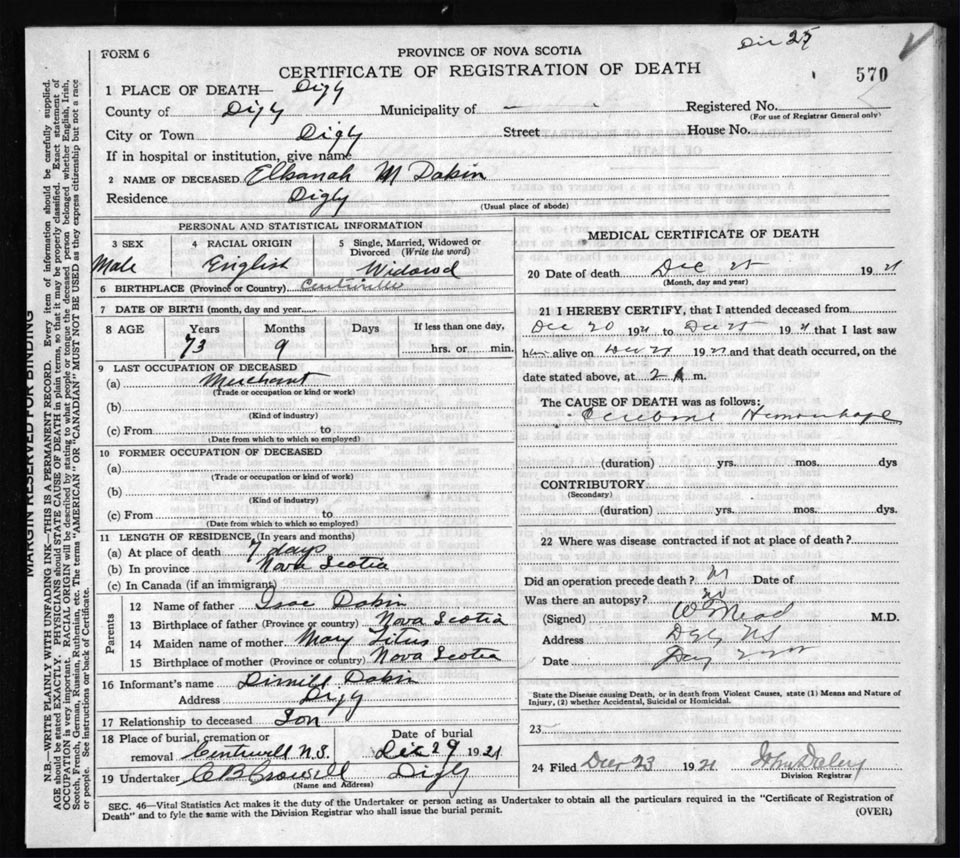 Dec 25
FORM 6
PROVINCE OF NOVA SCOTIA
CERTIFICATE OF REGISTRATION OF DEATH
570
1 PLACE OF DEATH— Digby
County of Digby Municipality of — Registered No.
(For use of Registrar General only)
City or Town Digby Street House No.
If in hospital or institution, give name
2 NAME OF DECEASED Elkanah M Dakin
Residence Digby
(Usual place of abode)
PERSONAL AND STATISTICAL INFORMATION
3 SEX 4 RACIAL ORIGIN 5 Single, Married, Widowed or Divorced (Write the word)
Male English Widowd
6 BIRTHPLACE (Province or Country)
7 DATE OF BIRTH (month, day and year)
8 AGE Years Months Days If less than one day,
73 9 hrs. or min.
9 LAST OCCUPATION OF DECEASED
(a) Merchant
(Trade or occupation or kind or work)
(b)
(Kind of industry)
(c) From to
(Date from which to which so employed)
10 FORMER OCCUPATION OF DECEASED
(a)
(Trade or occupation or kind or work)
(b)
(Kind of industry)
(c) From to
(Date from which to which so employed)
11 LENGTH OF RESIDENCE (In years and months)
(a) At place of death 7 days
(b) In province Nova Scotia
(c) In Canada (if an immigrant)
Parents
12 Name of father Isac Dakin
13 Birthplace of father (Province or country) Nova Scotia
14 Maiden name of mother Mary Titus
15 Birthplace of mother (Province or country) Nova Scotia
16 Informant's name Dakin
Address Digby
17 Relationship to deceased Son
18 Place of burial, cremation or Date of burial
removal N.S. Dec 29 1921
19 Undertaker Digby
(Name and Address)
MEDICAL CERTIFICATE OF DEATH
20 Date of death Dec 25 1921
(Month, day and year)
21 I HEREBY CERTIFY, that I attended deceased from
Dec 20 1921 to Dec 25 1921 that I last saw
h alive on 1921 and that death occurred, on the
date stated above, at 2 A m.
The CAUSE OF DEATH was as follows:
Cerebral Hemorrhage
(duration) yrs. mos. dys
CONTRIBUTORY
(Secondary)
(duration) yrs. mos. dys.
22 Where was disease contracted if not at place of death?
Did an operation precede death? Date of
Was there an autopsy? no
(Signed) M.D.
Address Digby NS
Date
State the Disease causing Death, or in death from Violent Causes, state (1) Means and Nature of
Injury, (2) whether Accidental, Suicidal or Homicidal.
23
24 Filed 1921 John Daley
Division Registrar
SEC. 46—Vital Statistics Act makes it the duty of the Undertaker or person acting as Undertaker to obtain all the particulars required in the "Certificate of Registration of
Death" and to fyle the same with the Division Registrar who shall issue the burial permit.
(OVER)
MARGIN RESERVED FOR BINDING
N.B.—WRITE PLAINLY WITH UNFADING INK—THIS IS A PERMANENT RECORD. Every item of information should be carefully supplied.
AGE should be stated EXACTLY. PHYSICIANS should STATE CAUSE OF DEATH in plain terms, so that it may be properly classified. Exact statement of
OCCUPATION is very important. RACIAL ORIGIN will be described by stating to what people or tongue the deceased person belonged whether English, Irish,
Scotch, French, German, Russian, Ruthenian, etc. The terms "AMERICAN" OR "CANADIAN" MUST NOT BE USED as they express citizenship but not a race
or people. See instructions on back of Certificate.